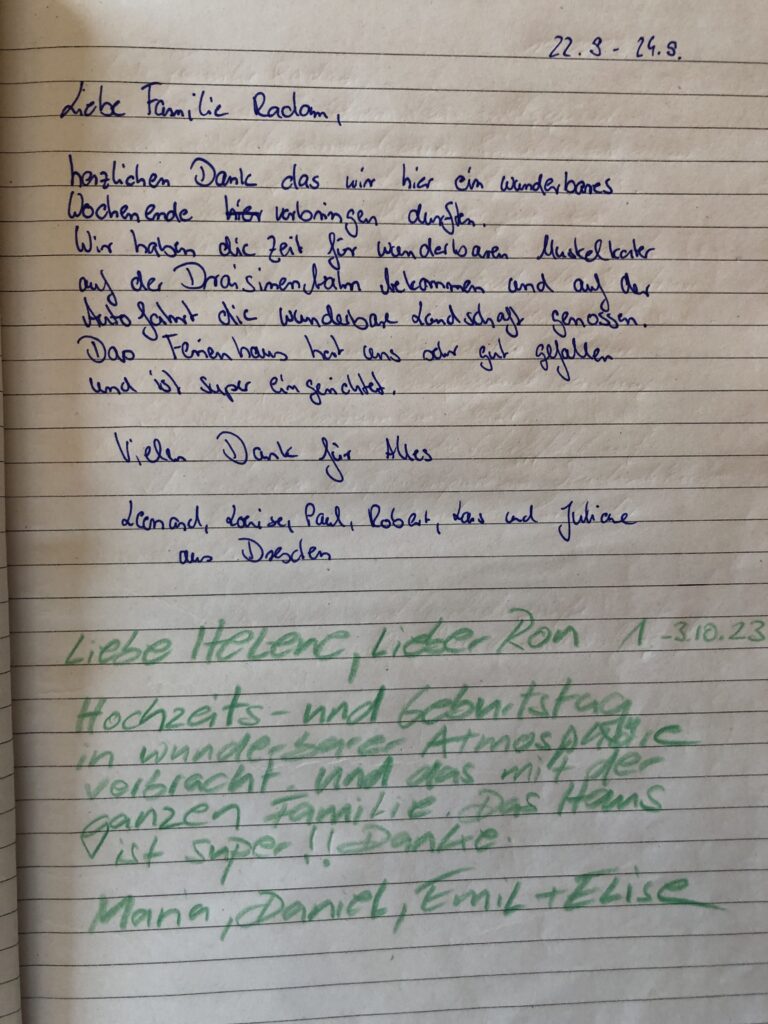 22.9 - 24.9.
Liebe Familie Radam,
herzlichen Dank das wir hier ein wunderbares
Wochenende hier verbringen durften.
Wir haben die Zeit für wunderbaren Muskelkater
auf der Draisinenbahn bekommen und auf der
Autofahrt die wunderbare Landschaft genossen.
Das Ferienhaus hat uns sehr gut gefallen
und ist super eingerichtet.
Vielen Dank für Alles
Leonard, Louise, Paul, Robert, Lars und Juliane
aus Dresden
Liebe Helene, Lieber Ron 1-3.10.23
Hochzeits- und Geburtstag
in wunderbarer Atmosphäre
verbracht. und das mit der
ganzen Familie. Das Haus
ist super!! Danke.
Maria, Daniel, Emil + Elise